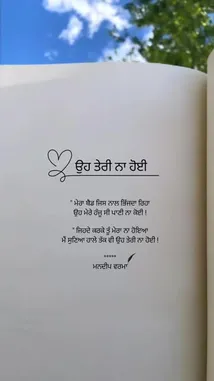 ਉਹ ਤੇਰੀ ਨਾ ਹੋਈ
" ਮੇਰਾ ਬੈੱਡ ਜਿਸ ਨਾਲ ਭਿੱਜਦਾ ਰਿਹਾ
ਉਹ ਮੇਰੇ ਹੰਝੂ ਸੀ ਪਾਣੀ ਨਾ ਕੋਈ !
" ਜਿਹਦੇ ਕਰਕੇ ਤੂੰ ਮੇਰਾ ਨਾ ਹੋਇਆ
ਮੈਂ ਸੁਣਿਆ ਹਾਲੇ ਤੱਕ ਵੀ ਉਹ ਤੇਰੀ ਨਾ ਹੋਈ !
*****
ਮਨਦੀਪ ਵਰਮਾ